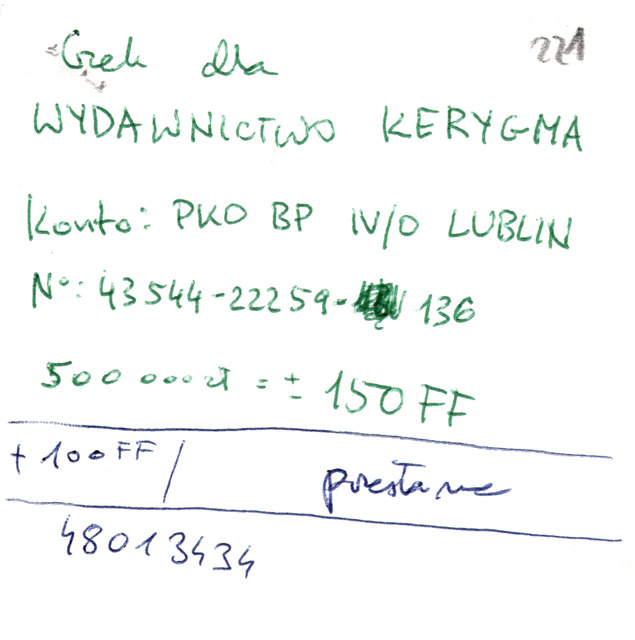 221
Czek dla
WYDAWNICTWO KERYGMA
Konto: PKO BP IV/O LUBLIN
N°: 43544-22259- 136
500 000 zł = ± 150 FF
+ 100 FF / przesłane
48013434